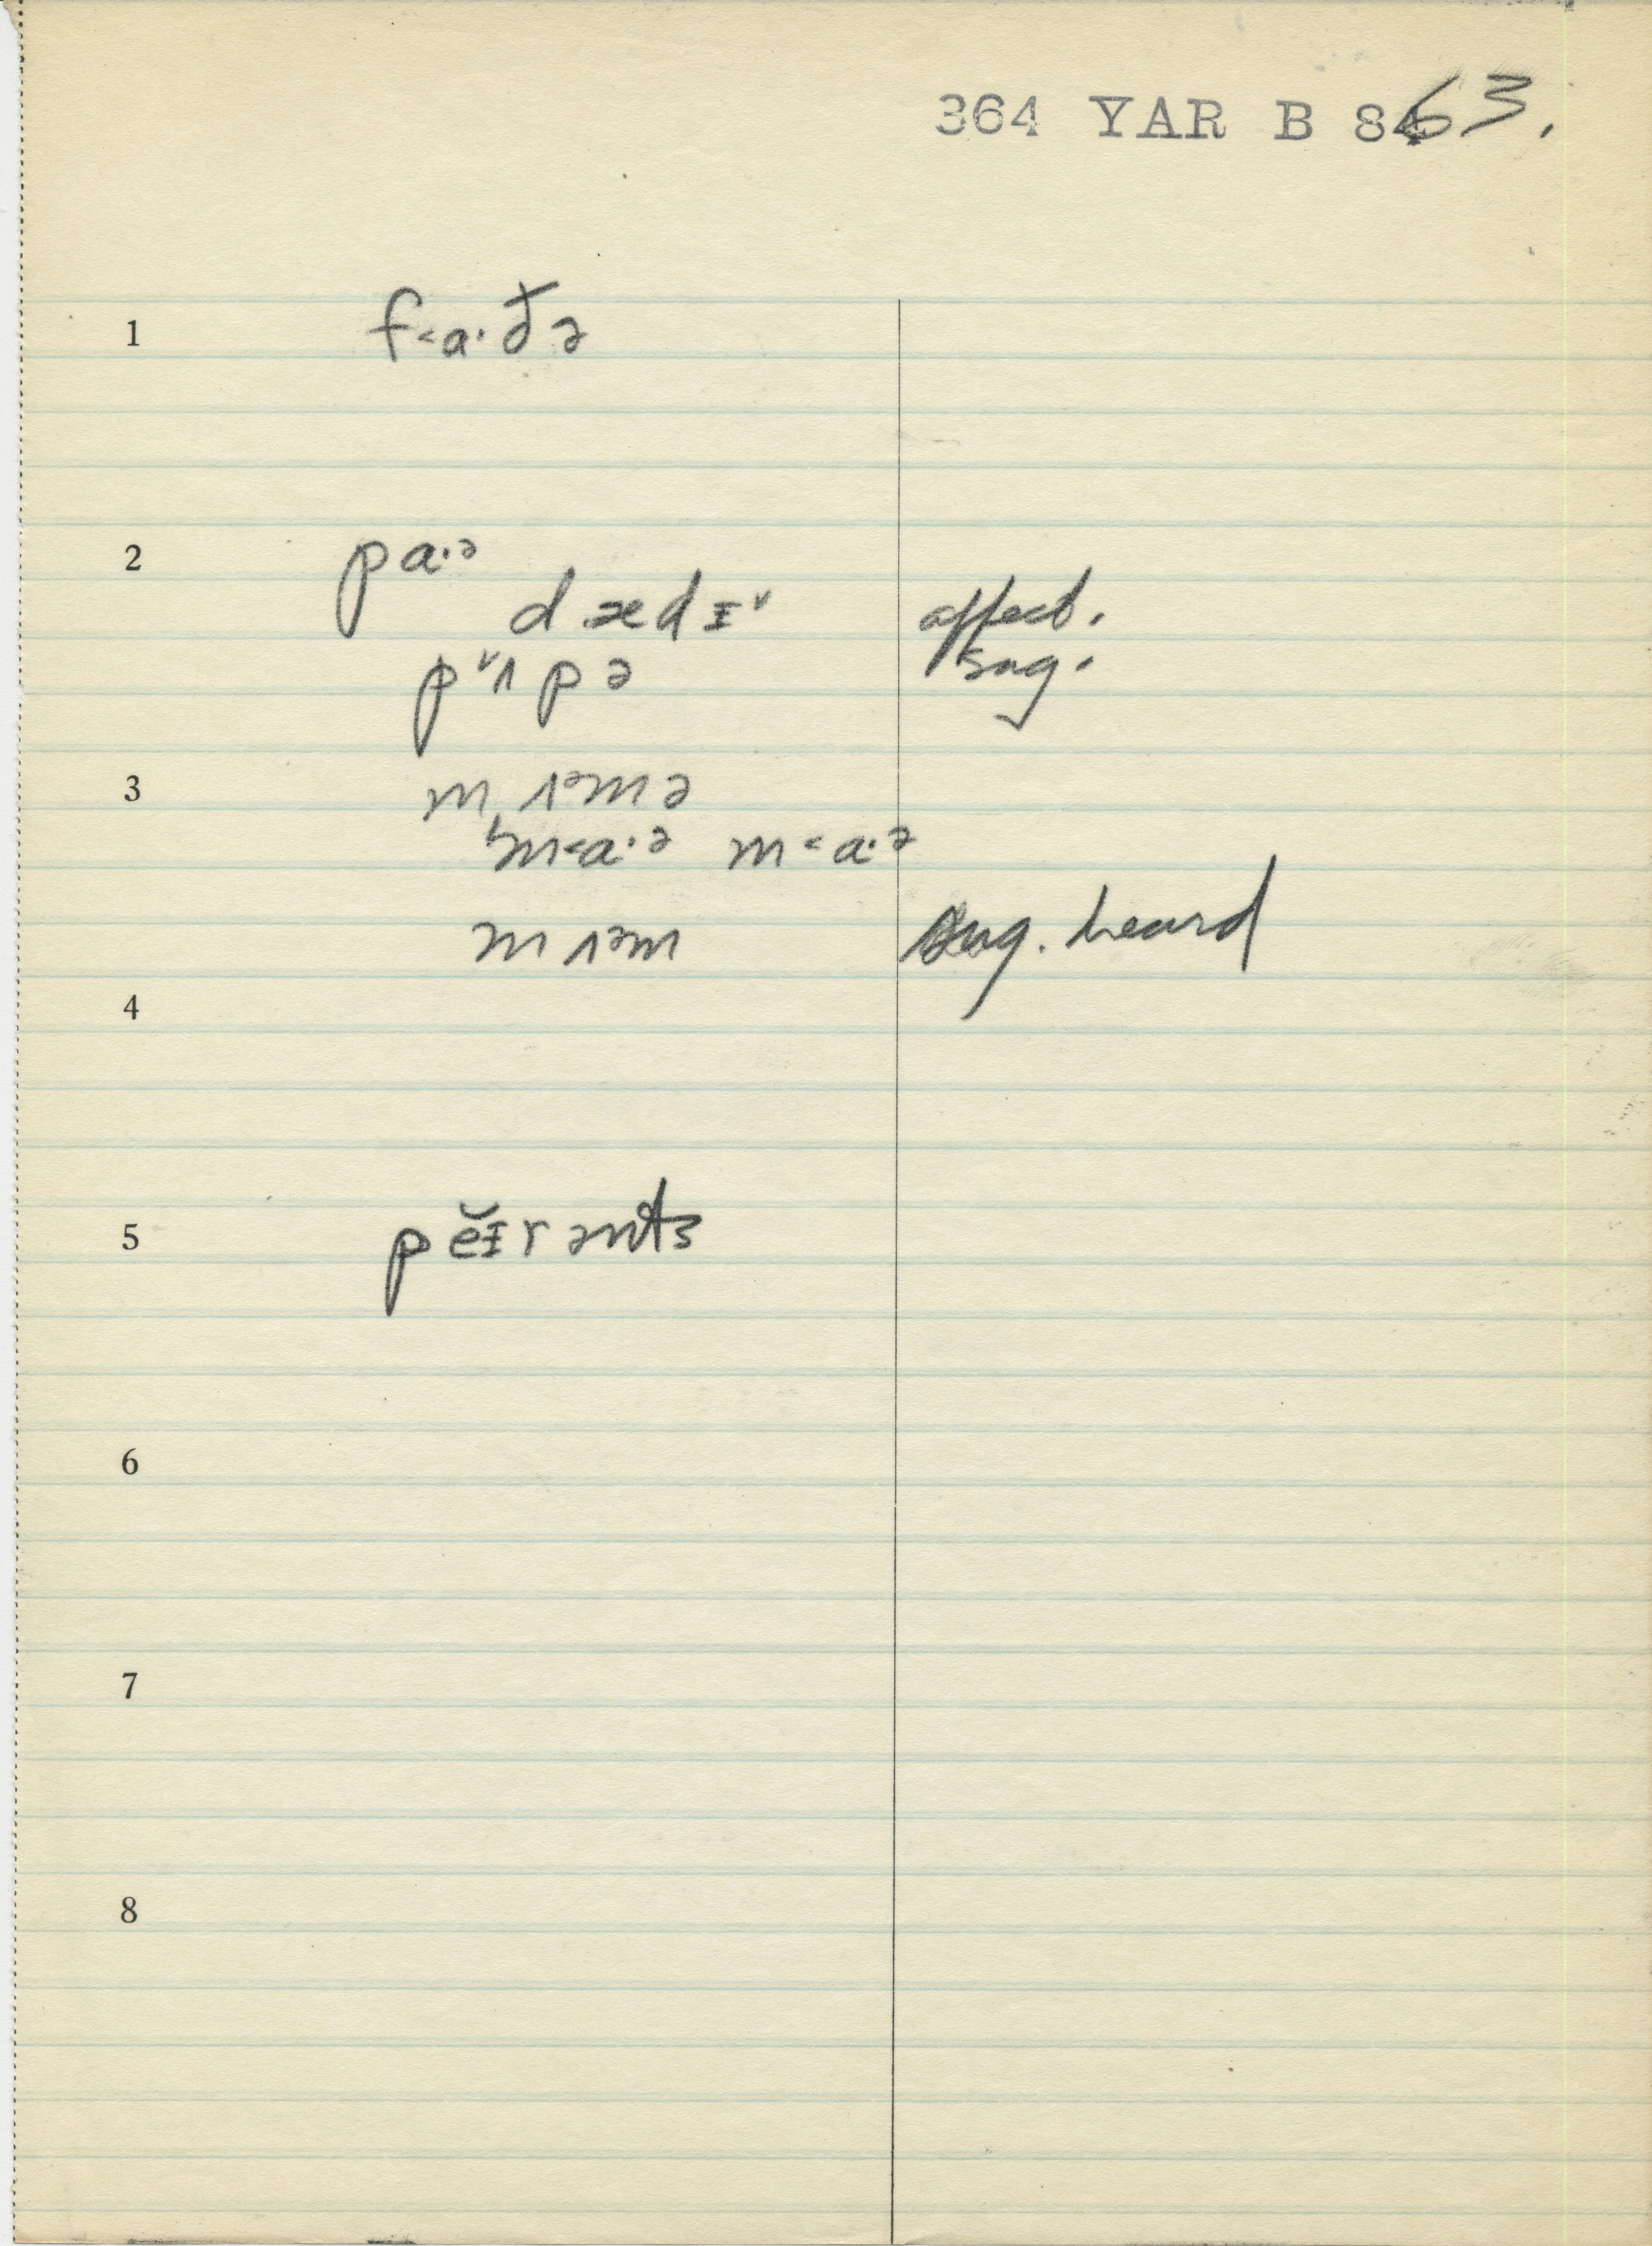 364 YAR B 8463.
1 f˂a·ðə
2 pa·ᵊ
dædɪ˅ affect.
p˅ʌpə sug.
3 mʌᵊmə
m˂a·ᵊ m˂a·ᵊ
mʌᵊm sug. heard
4
5 pĕɪrənts
6
7
8